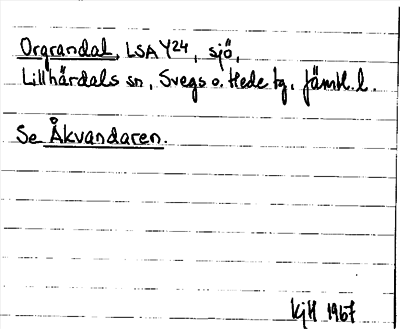 Orgrandal, LSA Y24, sjö,
Lillhärdals sn, Svegs o. Hede tg, Jämtl. l.
Se Åkvandaren.
KjH 1967